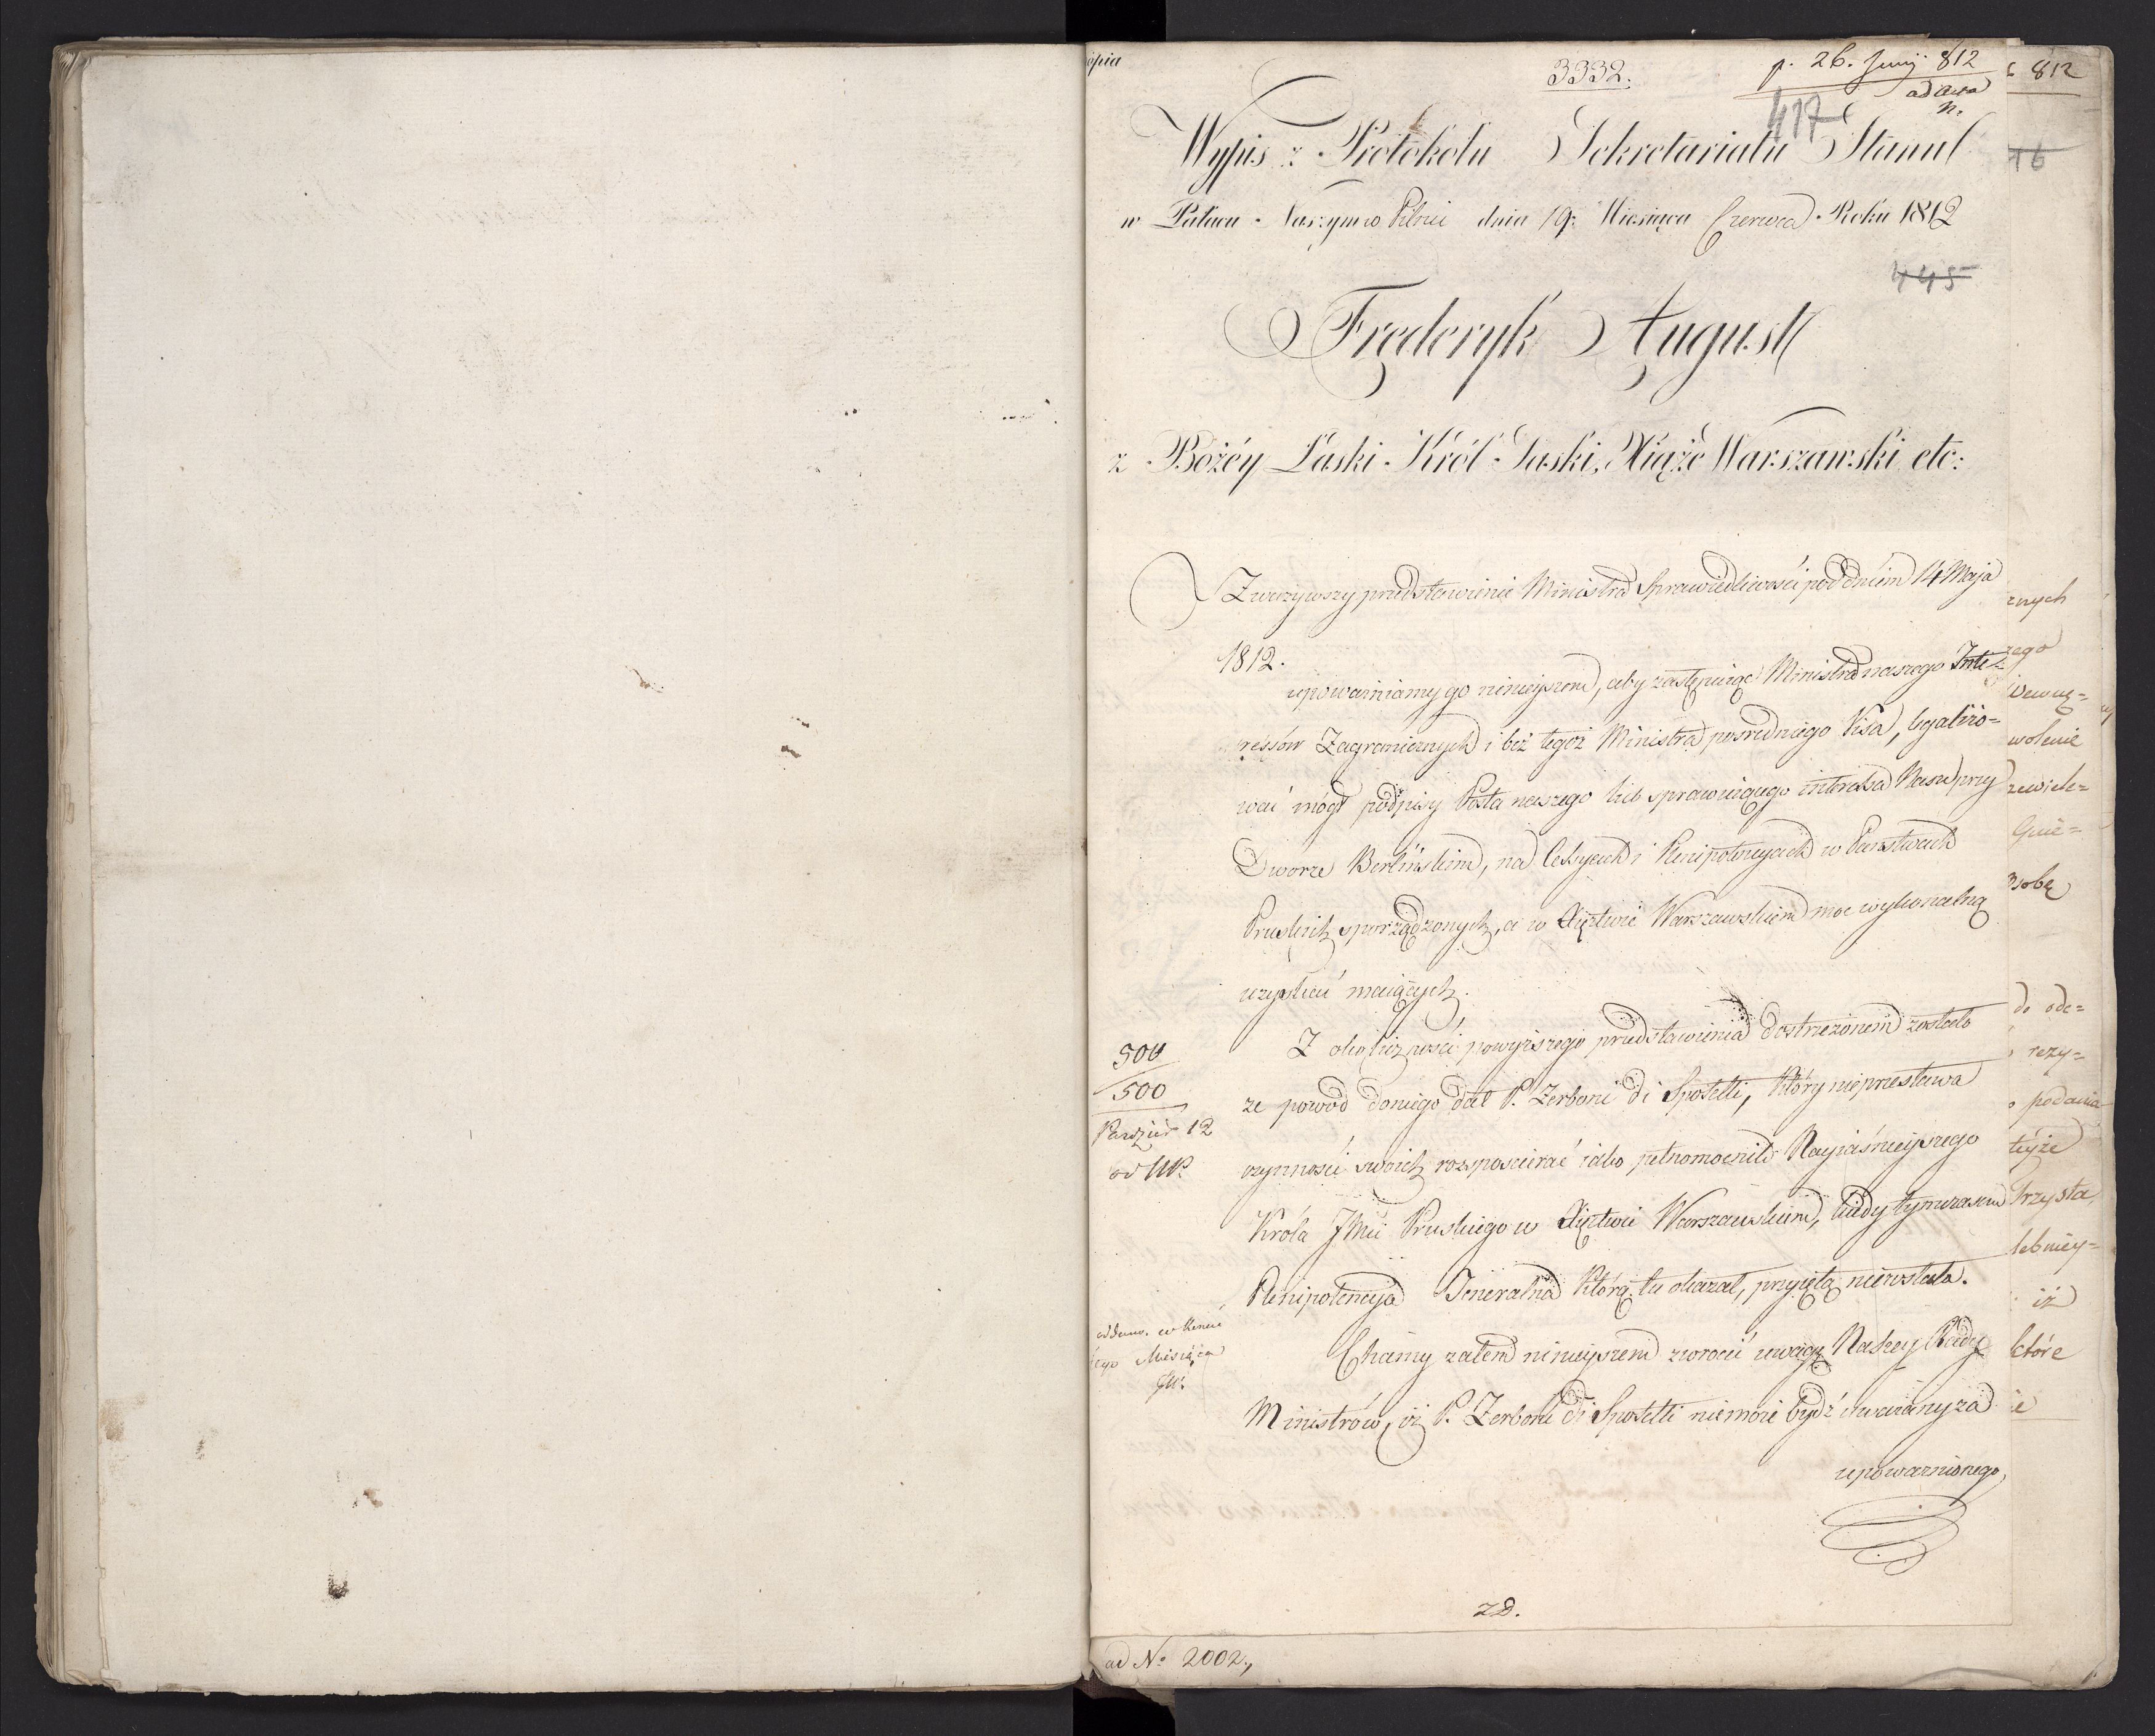 opia
3332.
p. 26. Junij 812
ad acta
n.
417
Wypis z Protokołu Sekretariatu Stanu
w Pałacu Naszym w Pilnic dnia 19. Miesiąca Czerwca Roku 1812
445
Fryderyk August
z Bożéy Łaski Król Saski, Xiąże Warszawski etc:
Zważywszy przedstawienie Ministra Sprawiedliwości pod dniem 14 Maja
1812.
upoważniamy go ninieyszem, aby zastępuiąc Ministra naszego Inte-
ressów Zagranicznych i bez tegoż Ministra pośredniego Visa, legalizo=
wać mógł podpisy Posła naszego lub sprawuiącego interessa Nasze przy
Dworze Berlińskim, na Cessyach i Plenipotencyach w Państwach
Pruskich sporządzonych, a w Xięztwie Warszawskiem moc wykonalną
uzyskać maiących.
Z okoliczności powyższego przedstawienia dostrzeżonem zostało
że powód do niego dał P. Zerboni di Sposetti, który nieprzestawa
czynności swoich rozpościerać iako pełnomocnik Nayiaśnieyszego
Króla JMci Pruskiego w Xięztwie Warszawskiem, kiedy tymczasem
Plenipotencya Jeneralna którą tu okazał, przyięta niezostała.
Chcemy zatem ninieyszem zwrócić uwagę Naszey Rady
Ministrów, iż P. Zerboni di Sposetti niemoże bydź uważany za
upoważnionego,
500
500
12
Miesiąca
zD.
ad No 2002.,
812
16
znych
zego
Wewnę=
wolenie
Gnie=
osobę
do ode=
rezy=
podania
teyże
trzysta
iż
które